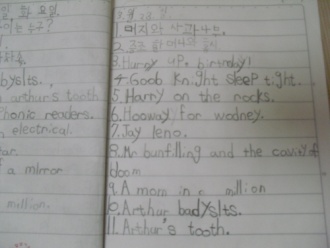 일 화 요일
는 누구?
dyslts.
arthur's tooth
phonic readers.
electrical.
tar.
f a mirror
million.
3월 28일
1. 먼지와 사과나무.
3. Hurry up, birthday!
4. Goob knight sleep tight.
5. Harry on the rocks.
6. Hooway for wodney.
7. Jay leno.
8. Mr bunfilling and the cavity of
doom
9. A mom in a million
10. Arthur badyslts.
11. Arthur's tooth.